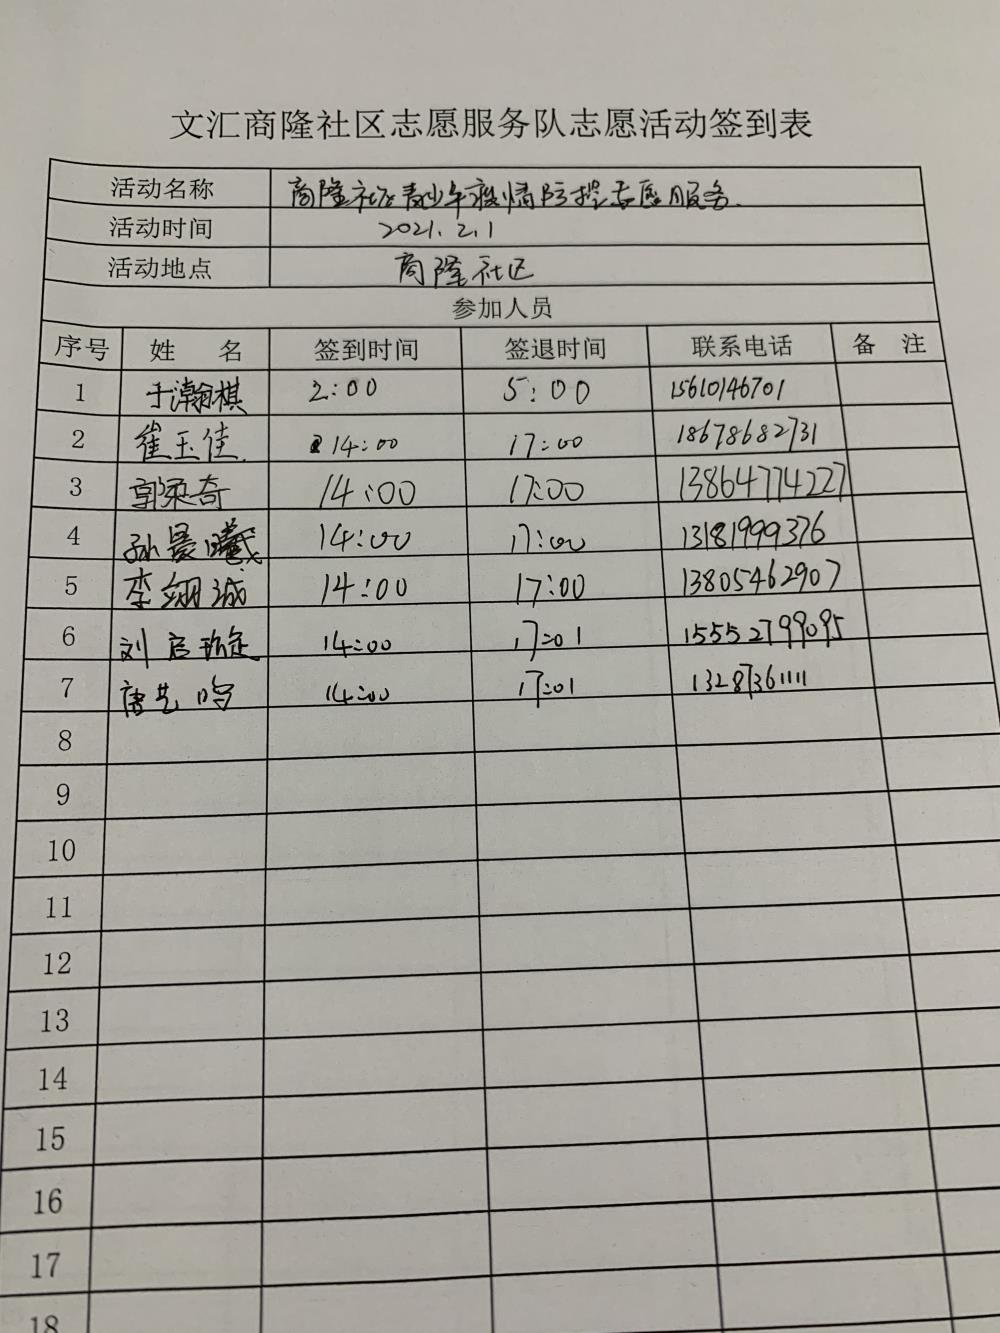 文汇商隆社区志愿服务队志愿活动签到表
活动名称 商隆社区青少年疫情防控志愿服务.
活动时间 2021.2.1
活动地点 商隆社区
参加人员
序号 姓 名 签到时间 签退时间 联系电话 备 注
1 于瀚棋 2:00 5:00 15610146701
2 崔玉佳. 14:00 17:00 18678682731
3 郭梁奇 14:00 17:00 13864774227
4 孙晨曦 14:00 17:00 13181999376
5 李翊诚 14:00 17:00 13805462907
6 刘启 14:00 17:01 15552799095
7 唐艺 14:00 17:01 13287361111
8
9
10
11
12
13
14
15
16
17
18